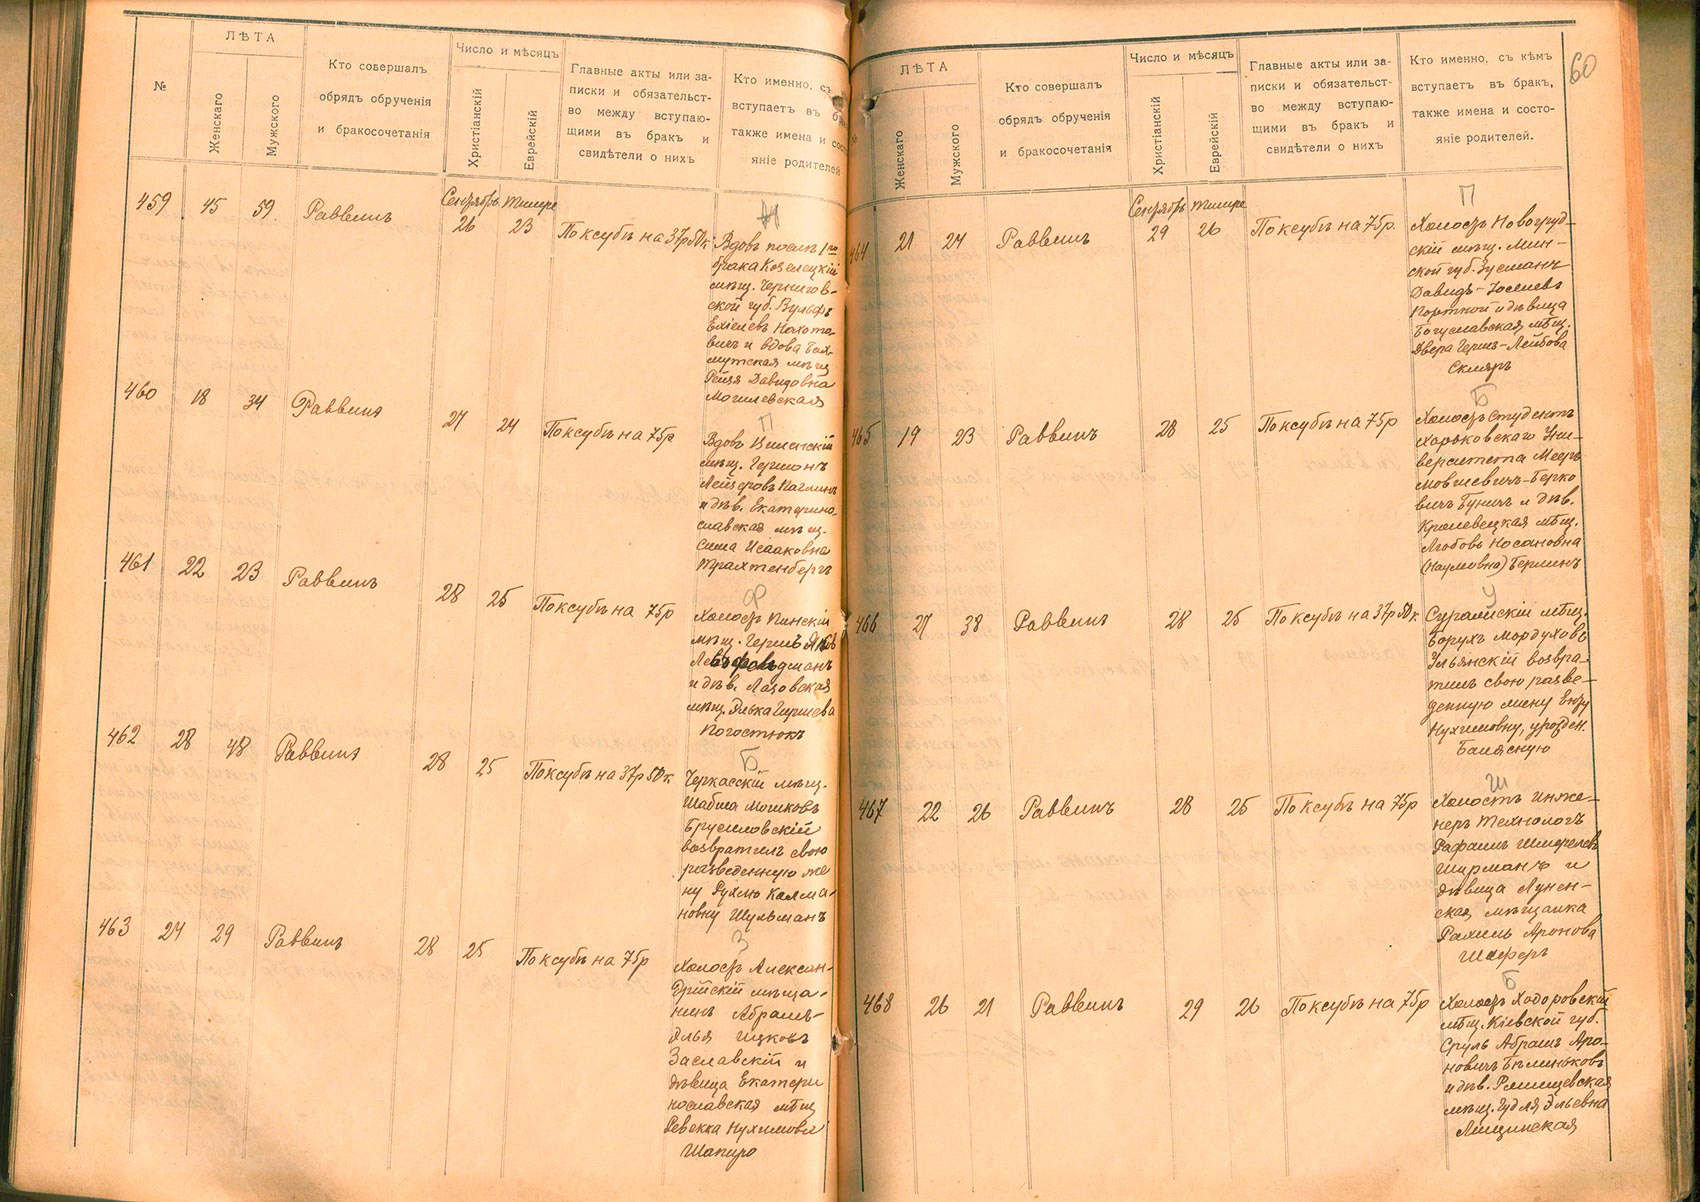 №
ЛѢТА
Женскаго
Мужского
Кто совершалъ
обрядъ обрученія
и бракосочетанія
Число и мѣсяцъ
Христіанскій
Еврейскій
Главные акты или за-
писки и обязательст-
во между вступаю-
щими въ бракъ и
свидѣтели о нихъ
Кто именно, съ
вступаетъ въ
также имена и сост
яніе родителей
459 45 59 Раввинъ
Сентябрь Тишре
26 23
По ксубѣ на 37р 50к
Вдовъ послѣ 1го
брака Козелецкій
мѣщ. Чернигов-
ской губ. Вульфъ
вичъ и вдова Бах-
мутская мѣщ
Рейзя Давидовна
Могилевская
460 18 34 Раввинъ 27 24 По ксубѣ на 75р
П
Вдовъ Виленскій
мѣщ.
Лейзеровъ
и дѣв. Екатерино-
славская мѣщ.
Сима Исааковна
Трахтенбергъ
461 22 23 Раввинъ 28 25 По ксубѣ на 75р
Ф
Холостъ Пинскій
мѣщ. Гершъ
и дѣв. Лазовская
мѣщ. Элька Гиршева
Погостюкъ
462 28 48 Раввинъ 28 25 По ксубѣ на 37р 50к
Б
Черкасскій мѣщ.
Шабса Мошковъ
Брусиловскій
возвратилъ свою
разведенную же
ну Рухлю Калма-
новну Шульманъ
463 24 29 Раввинъ 28 25 По ксубѣ на 75р
З
Холостъ Алексан-
дрійскій мѣща-
нинъ Абрамъ-
Элья Ицковъ
Заславскій и
дѣвица Екатери
нославская мѣщ
Ревекка Нухимова
Шапиро
60
ЛѢТА
Женскаго
Мужского
Кто совершалъ
обрядъ обрученія
и бракосочетанія
Число и мѣсяцъ
Христіанскій
Еврейскій
Главные акты или за-
писки и обязательст-
во между вступаю-
щими въ бракъ и
свидѣтели о нихъ
Кто именно, съ кѣмъ
вступаетъ въ бракъ,
также имена и состо-
яніе родителей.
464 21 24 Раввинъ
Сентябрь Тишре
29 26
По ксубѣ на 75р.
П
Холостъ Новогруд-
скій мѣщ. Мин-
ской губ. Зусманъ
Давидъ-Іоселевъ
Портной и дѣвица
Богуславская мѣщ.
Двера Гершъ-Лейбова
Скляръ
465 19 23 Раввинъ 28 25 По ксубѣ на 75р
Б
Холостъ студентъ
Харьковскаго Уни-
верситета Мееръ
Мовшевичъ-Берко
вичъ Бунич и дѣв.
Кролевецкая мѣщ.
Любовь Носановна
(Наумовна) Берлинъ
466 27 38 Раввинъ 28 25 По ксубѣ на 37р 50к
У
Суражскій мѣщ.
Борухъ Мордуховъ
Ульянскій возвра-
тилъ свою разве-
денную жену
Нухимовну, урожден.
Баляслую
467 22 26 Раввинъ 28 25 По ксубѣ на 75р
Ш
Холостъ инже-
неръ технологъ
Рафаилъ Шмерелевъ
Ширманъ и
дѣвица Лунен-
ская мѣщанка
Рахиль Аронова
Шеферъ
468 26 21 Раввинъ 29 26 По ксубѣ на 75р
Б
Холостъ Ходоровскій
мѣщ. Кіевской губ.
Сруль Абрамъ Аро-
новичъ Бѣлиньковъ
и дѣв. Ромищевская
мѣщ. Гудля Эльевна
Лещинская